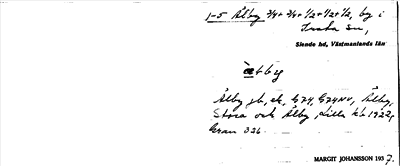 1-5 Ålby 3/4+3/4+1/2+1/2+1/2, by i
Irsta sn,
Siende hd, Västmanlands län
Ålby jb, ek, G74, G74NV, Ålby,
Stora och Ålby, Lilla kb 1922,
Gran 326.
MARGIT JOHANSSON 1937.